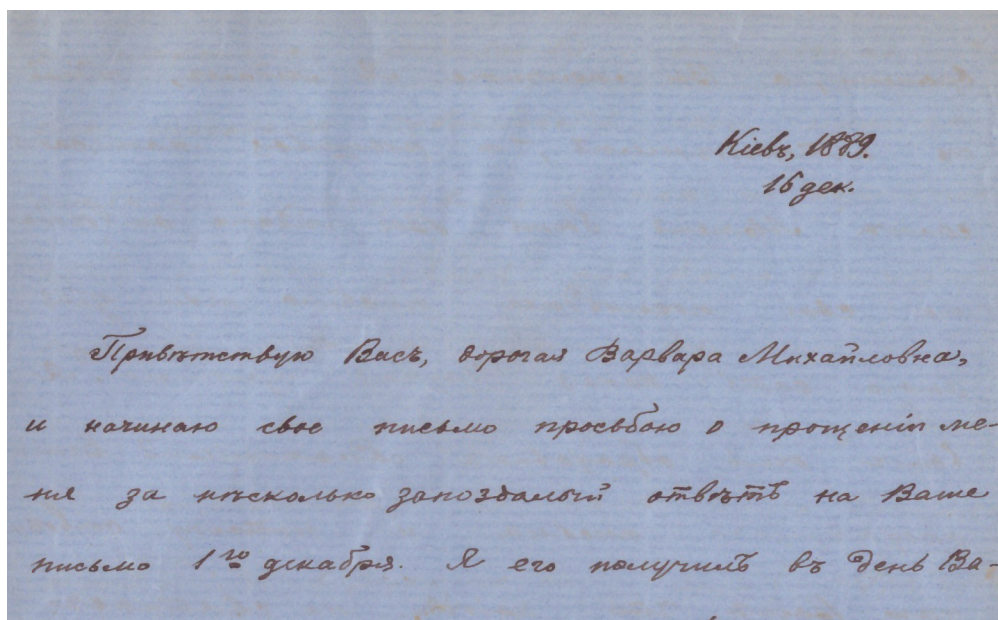 Кіевъ, 1889.
16 дек.
Привѣтствую Васъ, дорогая Варвара Михайловна,
и начинаю свое письмо просьбою о прощеніи ме-
ня за нѣсколько запоздалый отвѣтъ на Ваше
письмо 1го декабря. Я его получилъ въ день Ва-